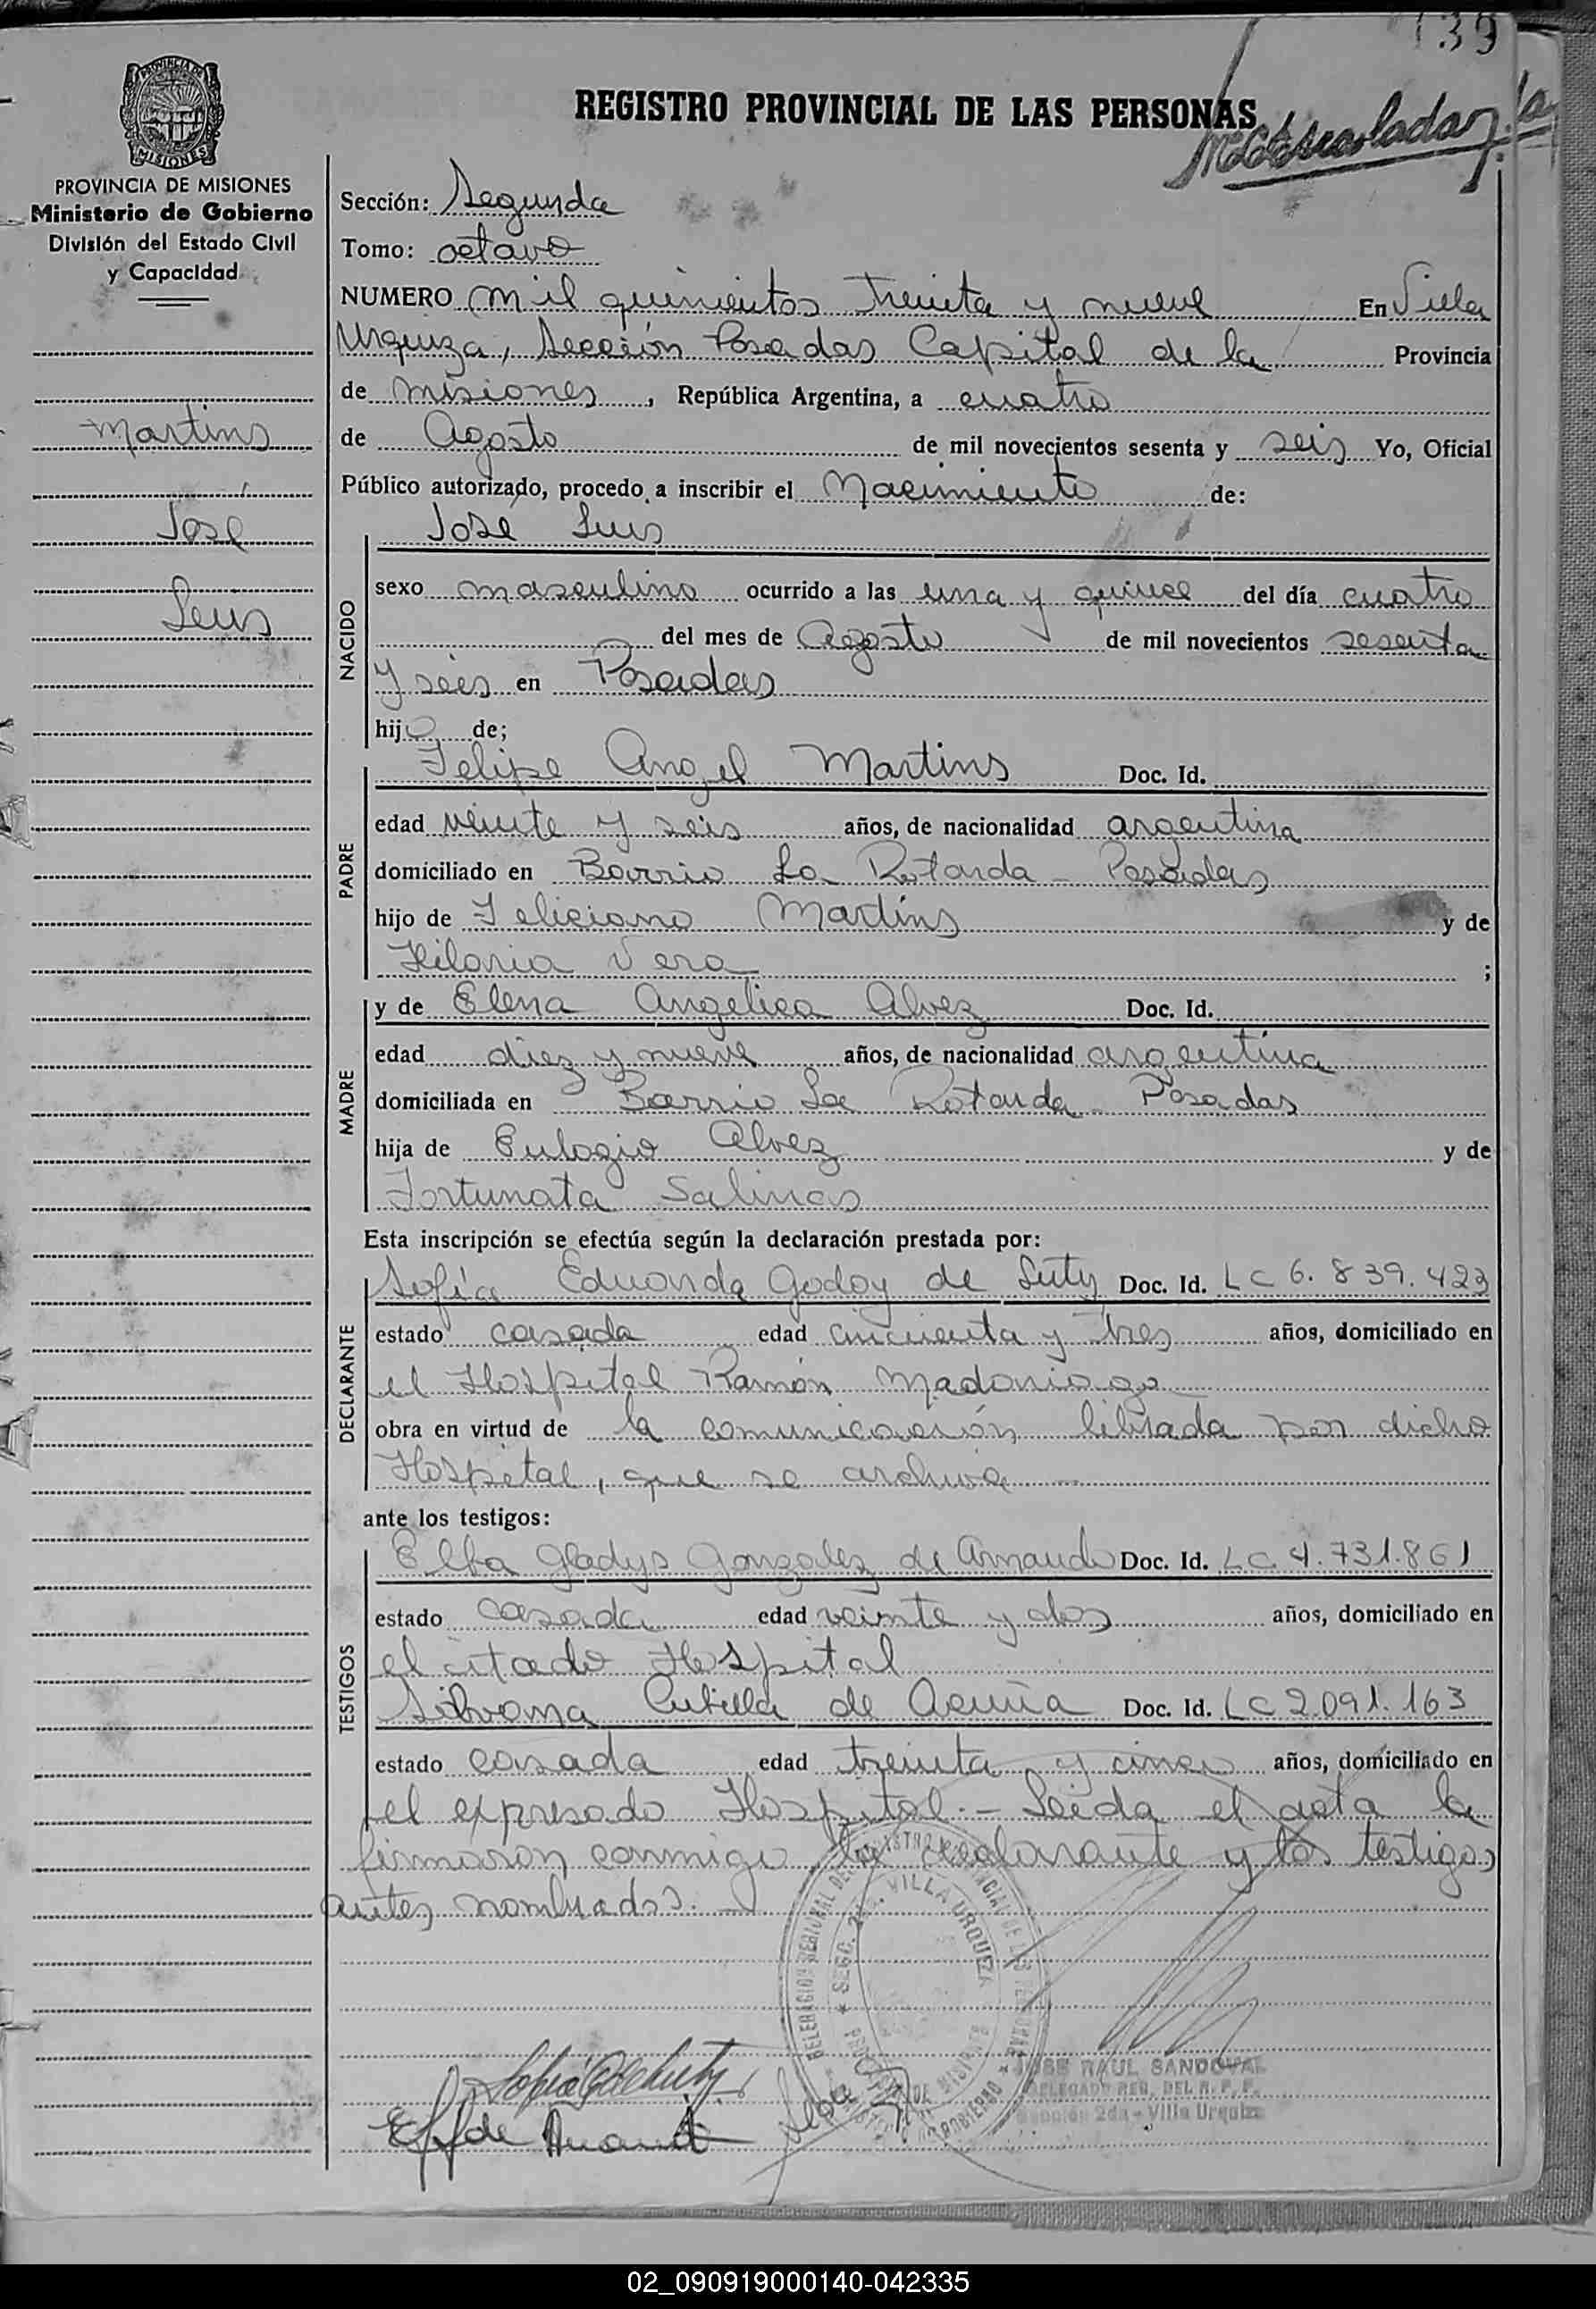 139
REGISTRO PROVINCIAL DE LAS PERSONAS
MISIONES
PROVINCIA DE MISIONES
Ministerio de Gobierno
División del Estado Civil
y Capacidad
Martins
José
Luis
Sección: Segunda
Tomo: octavo
NUMERO mil quinientos treinta y nueve En Villa
Urquiza, Sección Posadas Capital de la Provincia
de misiones, República Argentina, a cuatro
de Agosto de mil novecientos sesenta y seis Yo, Oficial
Público autorizado, procedo a inscribir el Nacimiento de:
NACIDO
José Luis
sexo masculino ocurrido a las una y quince del día cuatro
del mes de Agosto de mil novecientos sesenta
y seis en Posadas
hijo de;
PADRE
Felipe Angel Martins Doc. Id.
edad veinte y seis años, de nacionalidad argentina
domiciliado en Barrio La Rotonda - Posadas
hijo de Feliciano Martins y de
Hilaria Vera ;
MADRE
y de Elena Angelica Alvez Doc. Id.
edad diez y nueve años, de nacionalidad argentina
domiciliada en Barrio La Rotonda - Posadas
hija de Eulogio Alvez y de
Fortunata Salinas
Esta inscripción se efectúa según la declaración prestada por:
DECLARANTE
Sofía Eduarda Godoy de Luty Doc. Id. LC 6.839.423
estado casada edad cincuenta y tres años, domiciliado en
el Hospital Ramón Madariaga
obra en virtud de la comunicación librada por dicho
Hospital, que se archiva
ante los testigos:
TESTIGOS
Elba Gladys Gonzalez de Arnaudo Doc. Id. LC. 4.731.861
estado casada edad veinte y dos años, domiciliado en
el citado Hospital
Silvana Cubilla de Acuña Doc. Id. LC 2.091.163
estado casada edad treinta y cinco años, domiciliado en
el expresado Hospital. - Leída el acta la
firmaron conmigo, la declarante y los testigos
antes nombrados. -
SECC. 2da. VILLA URQUIZA
JOSE RAUL SANDOVAL
DELEGADO REG. DEL R. P. P.
Sección 2da - Villa Urquiza
02_090919000140-042335